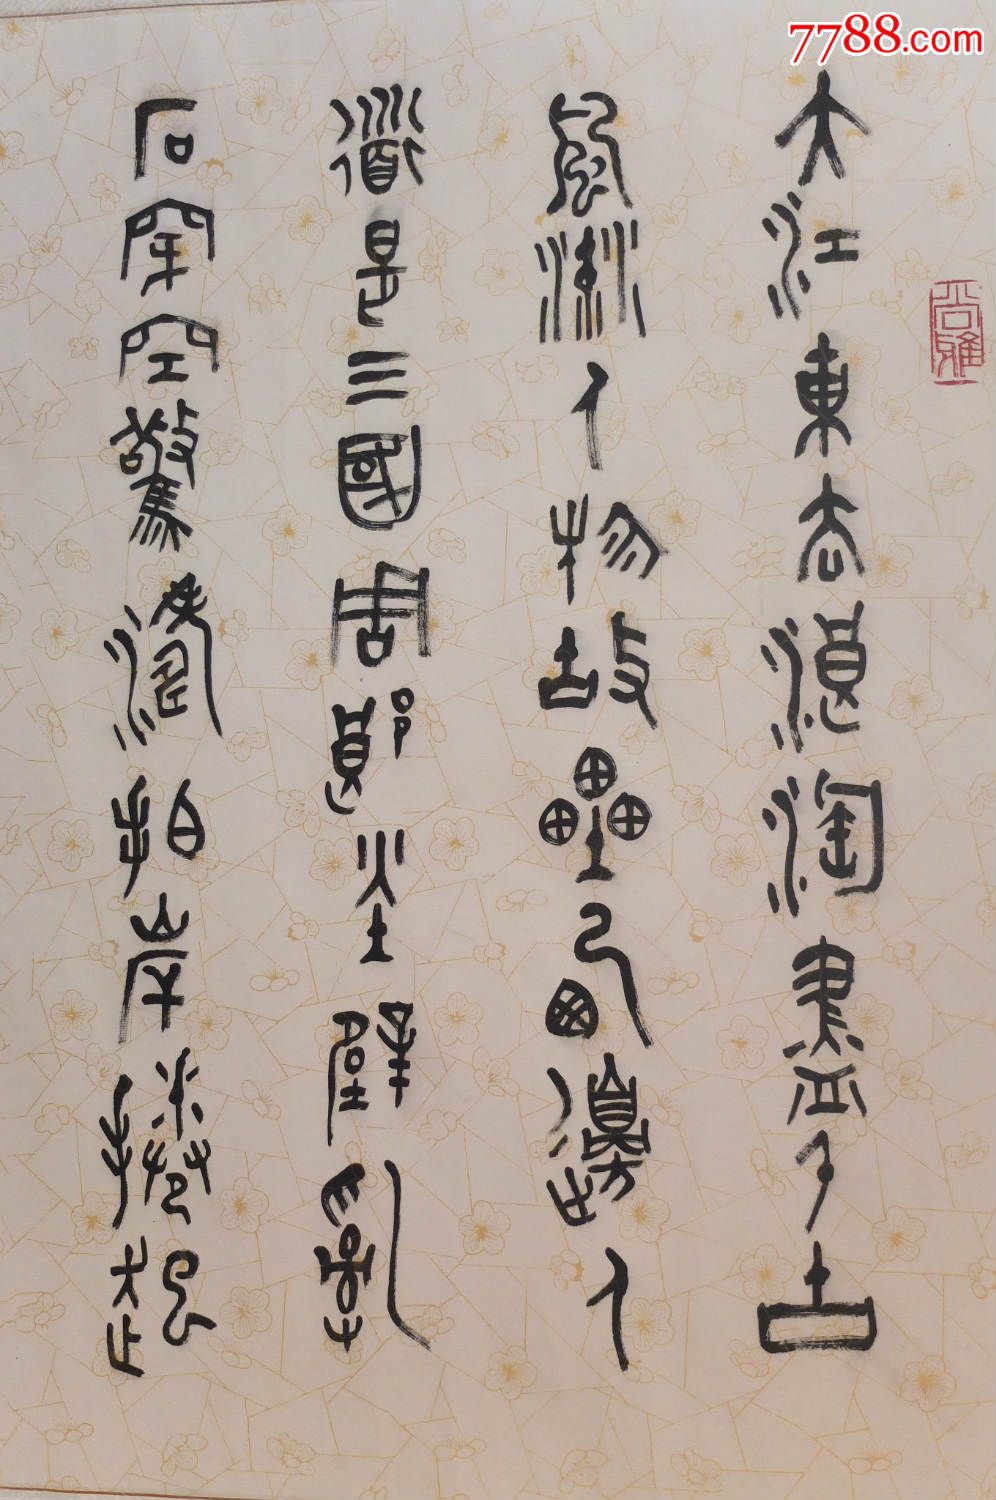 7788.com
尚雅
大江東去浪淘盡千古
風流人物故壘西邊人
道是三國周郎赤壁亂
石穿空驚濤拍岸捲起